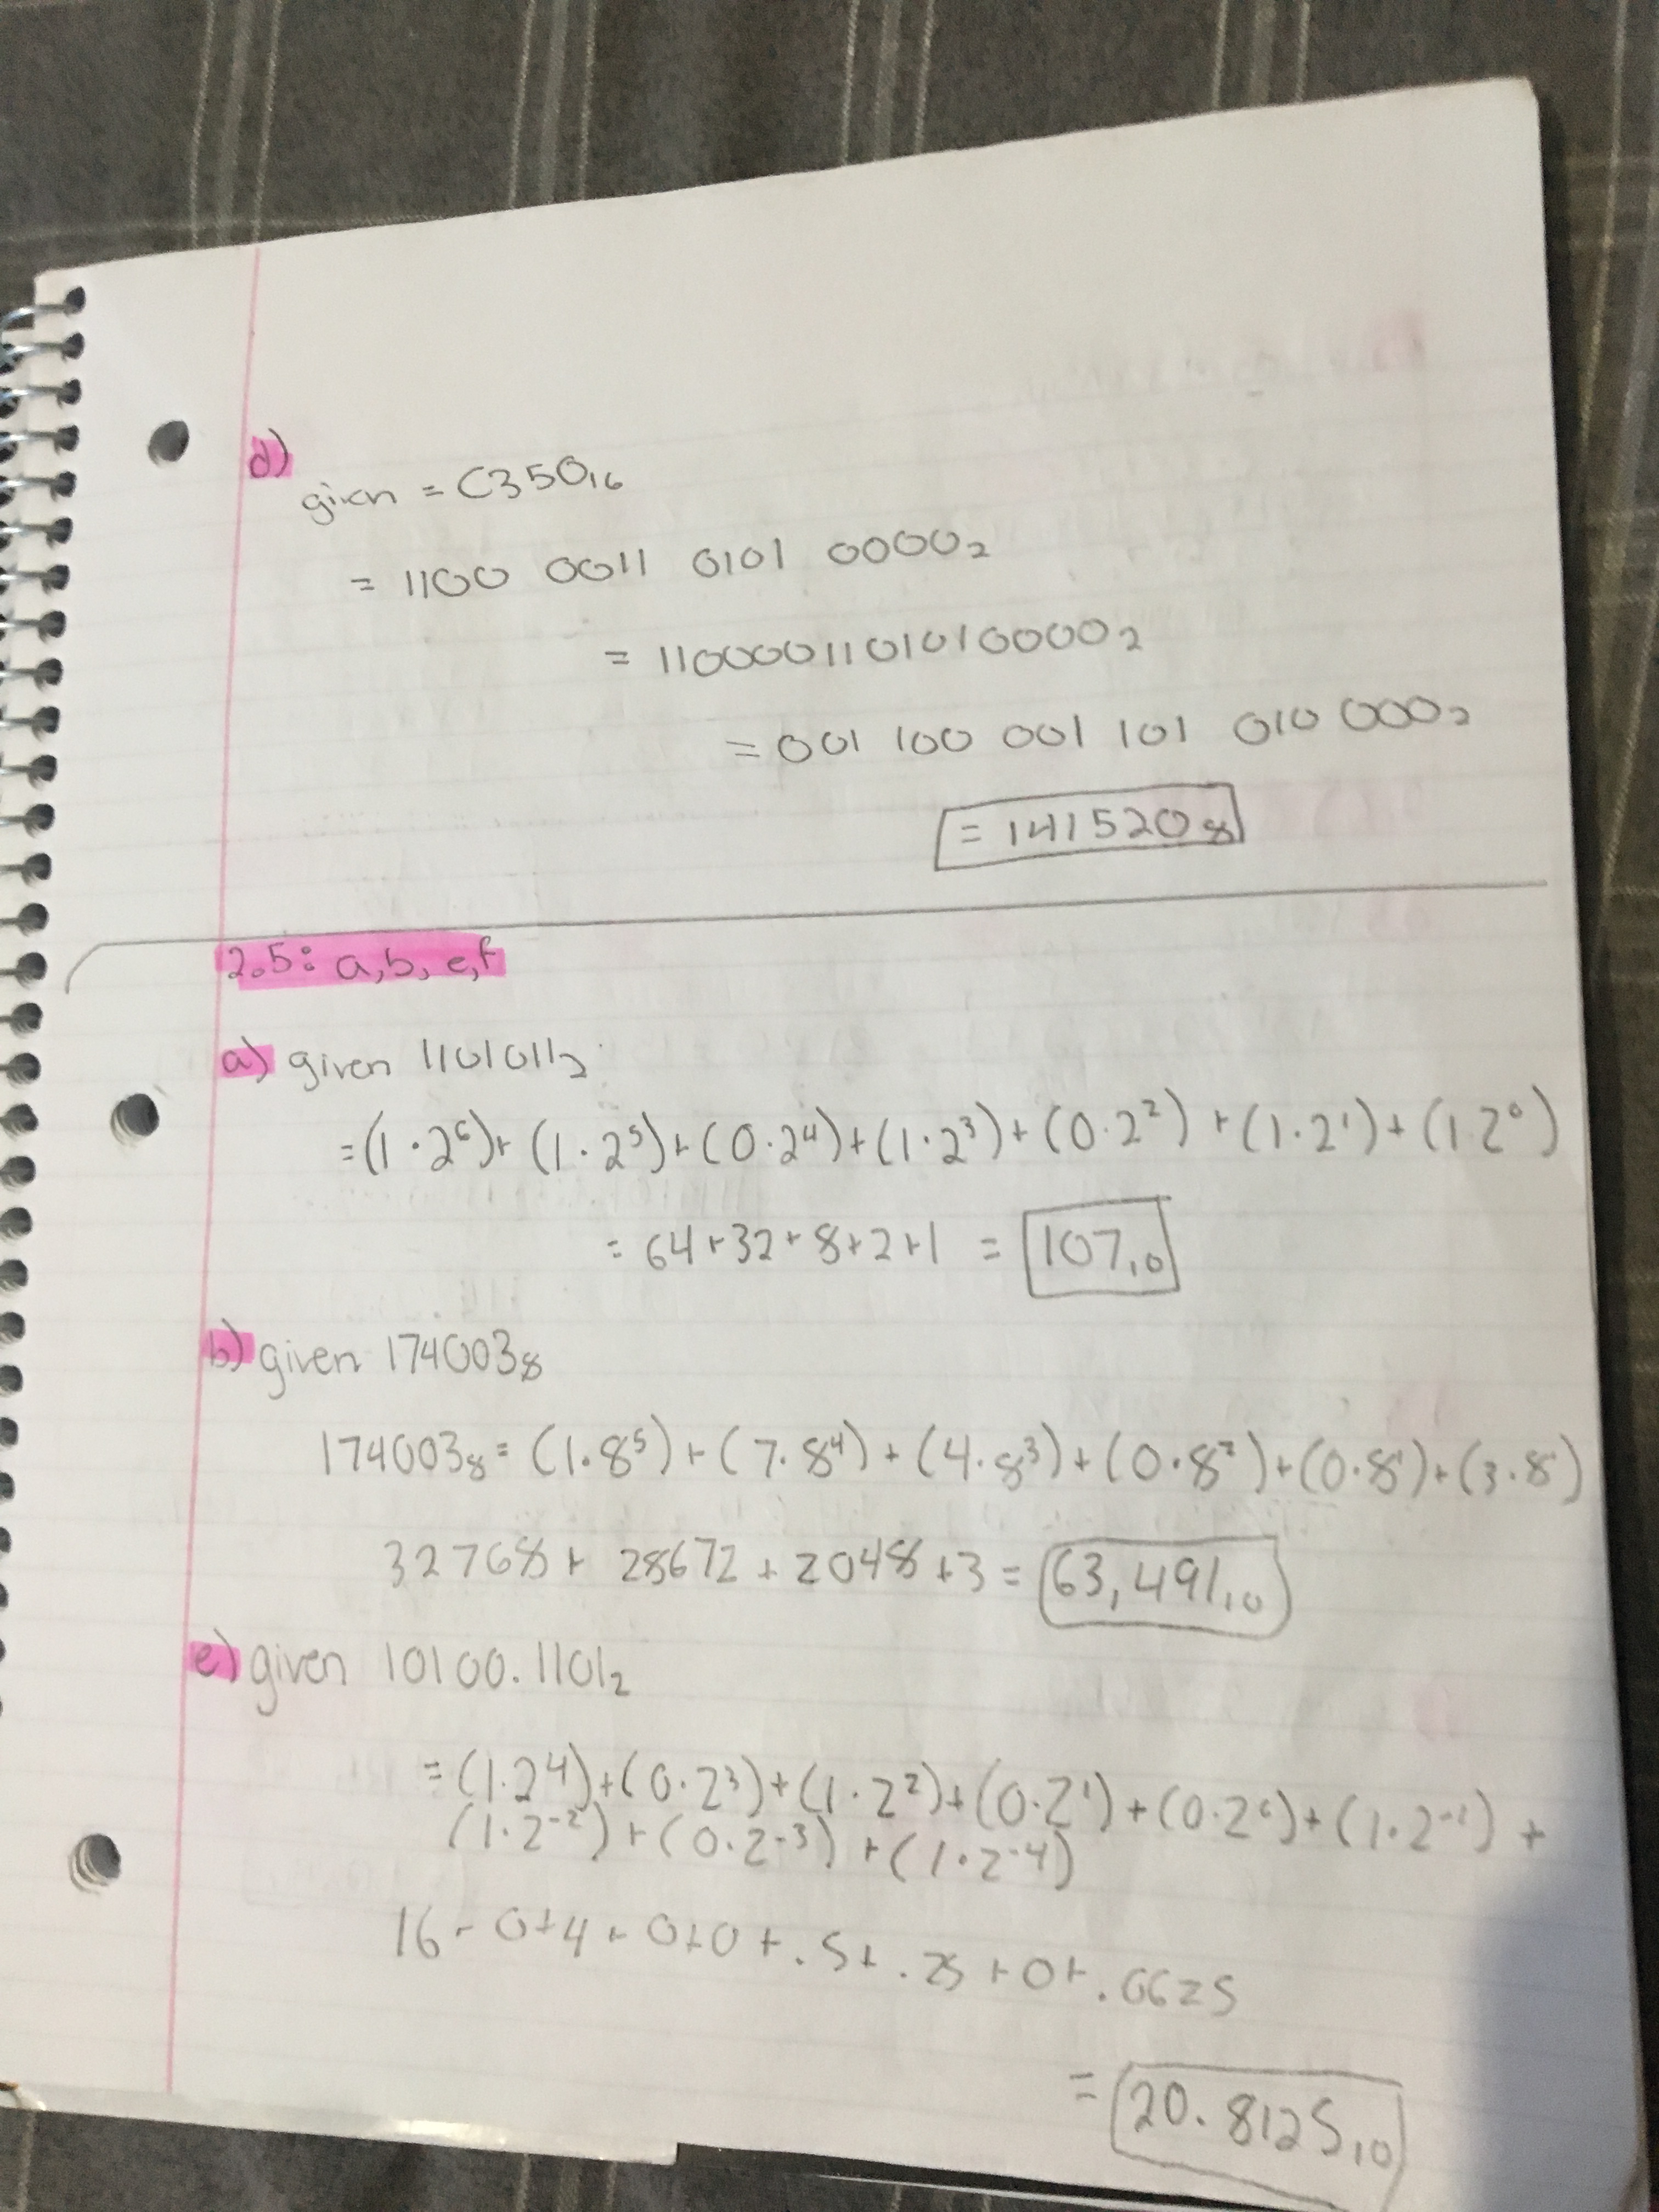 d)
given = C350₁₆
= 1100 0011 0101 0000₂
= 1100001101010000₂
= 001 100 001 101 010 000₂
= 141520₈
2.5: a,b, e,f
a) given 1101011₂
= (1·2⁶)+ (1·2⁵)+(0·2⁴)+(1·2³)+(0·2²) +(1·2¹)+(1·2⁰)
= 64+32+8+2+1 = 107₁₀
b) given 174003₈
174003₈ = (1·8⁵)+(7·8⁴)+(4·8³)+(0·8²)+(0·8¹)+(3·8⁰)
32768+ 28672 + 2048 +3 = 63,491₁₀
e) given 10100.1101₂
= (1·2⁴)+(0·2³)+(1·2²)+(0·2¹)+(0·2⁰)+(1·2⁻¹) +
(1·2⁻²)+(0·2⁻³)+(1·2⁻⁴)
16 + 0+4+0+0+.5+.25+0+.0625
= 20.8125₁₀